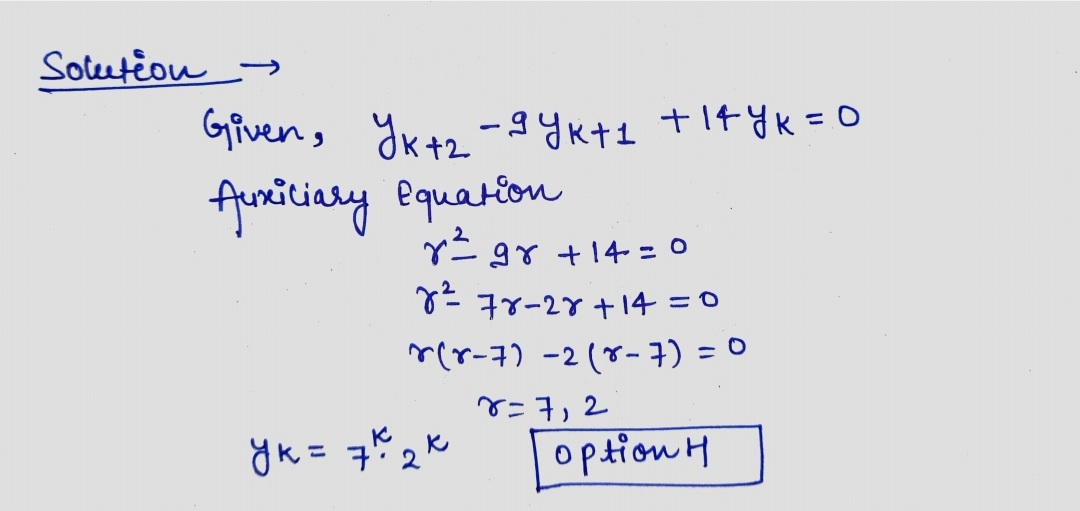 Solution →
Given, yk+2 - 9yk+1 + 14yk = 0
Auxiliary Equation
r² - 9r + 14 = 0
r² - 7r - 2r + 14 = 0
r(r-7) - 2(r-7) = 0
r = 7, 2
yk = 7^k. 2^k option H